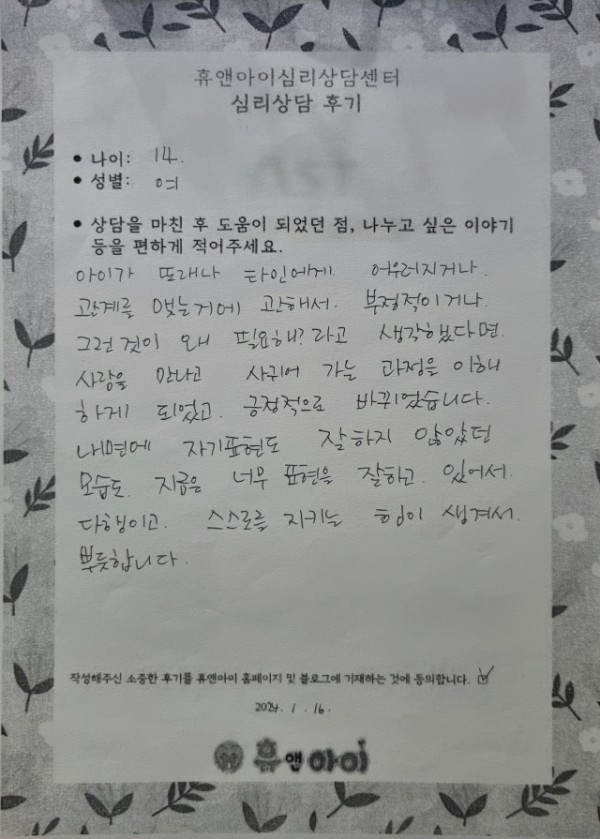 휴앤아이심리상담센터
심리상담 후기
• 나이: 14.
• 성별: 여
• 상담을 마친 후 도움이 되었던 점, 나누고 싶은 이야기
등을 편하게 적어주세요.
아이가 또래나 타인에게 어우러지거나.
관계를 맺는거에 관해서. 부정적이거나.
그런것이 왜 필요해? 라고 생각했다면.
사람을 만나고 사귀어 가는 과정을 이해
하게 되었고. 긍정적으로 바뀌었습니다.
내면에 자기표현도 잘하지 않았던
모습도. 지금은 너무 표현을 잘하고. 있어서.
다행이고. 스스로를 지키는 힘이 생겨서.
뿌듯합니다.
작성해주신 소중한 후기를 휴앤아이 홈페이지 및 블로그에 기재하는 것에 동의합니다. ☑
2024. 1. 16.
휴앤아이